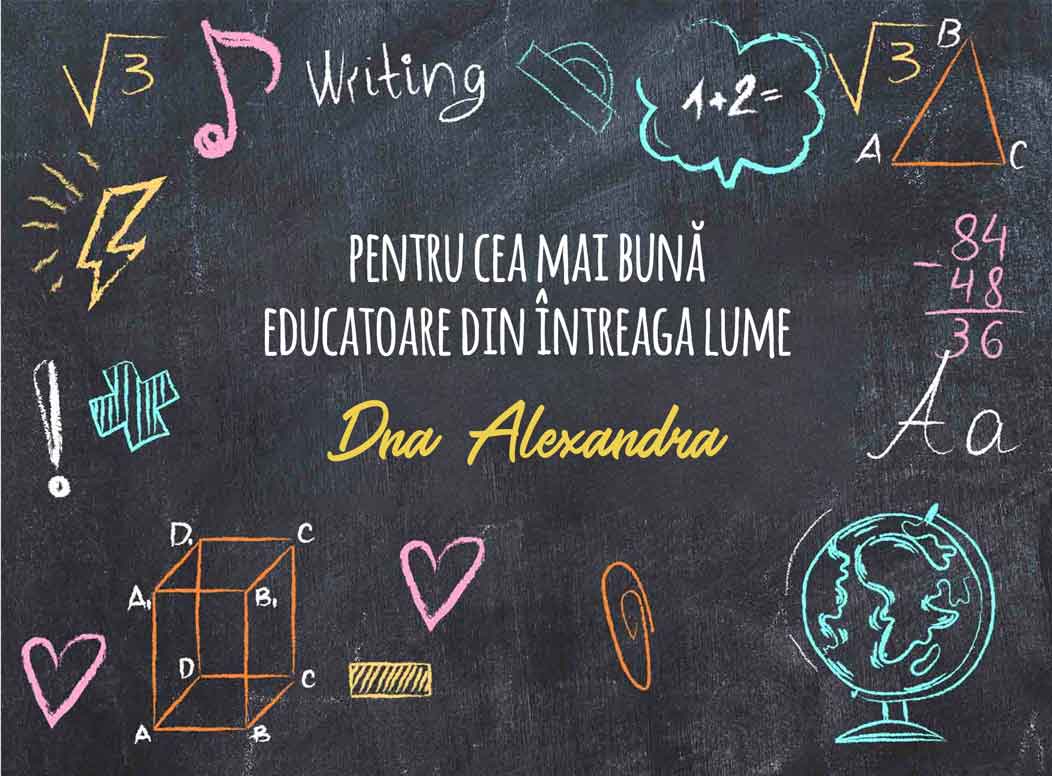 √3
Writing
1+2=
√3
B
A
C
84
- 48
36
PENTRU CEA MAI BUNĂ
EDUCATOARE DIN ÎNTREAGA LUME
Dna Alexandra
!
Aa
D₁
C
A₁
B₁
D
C
A
B